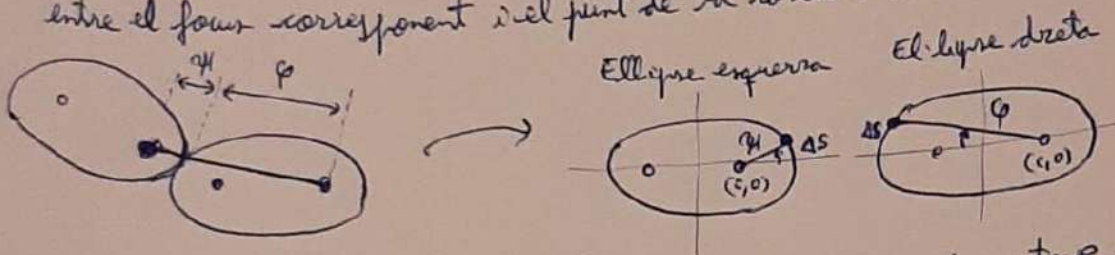 entre el focus corresponent i el punt de la
ψ φ
Ellipse esquerra
El·lipse dreta
ψ ΔS
(c,0)
ΔS φ
(c,0)